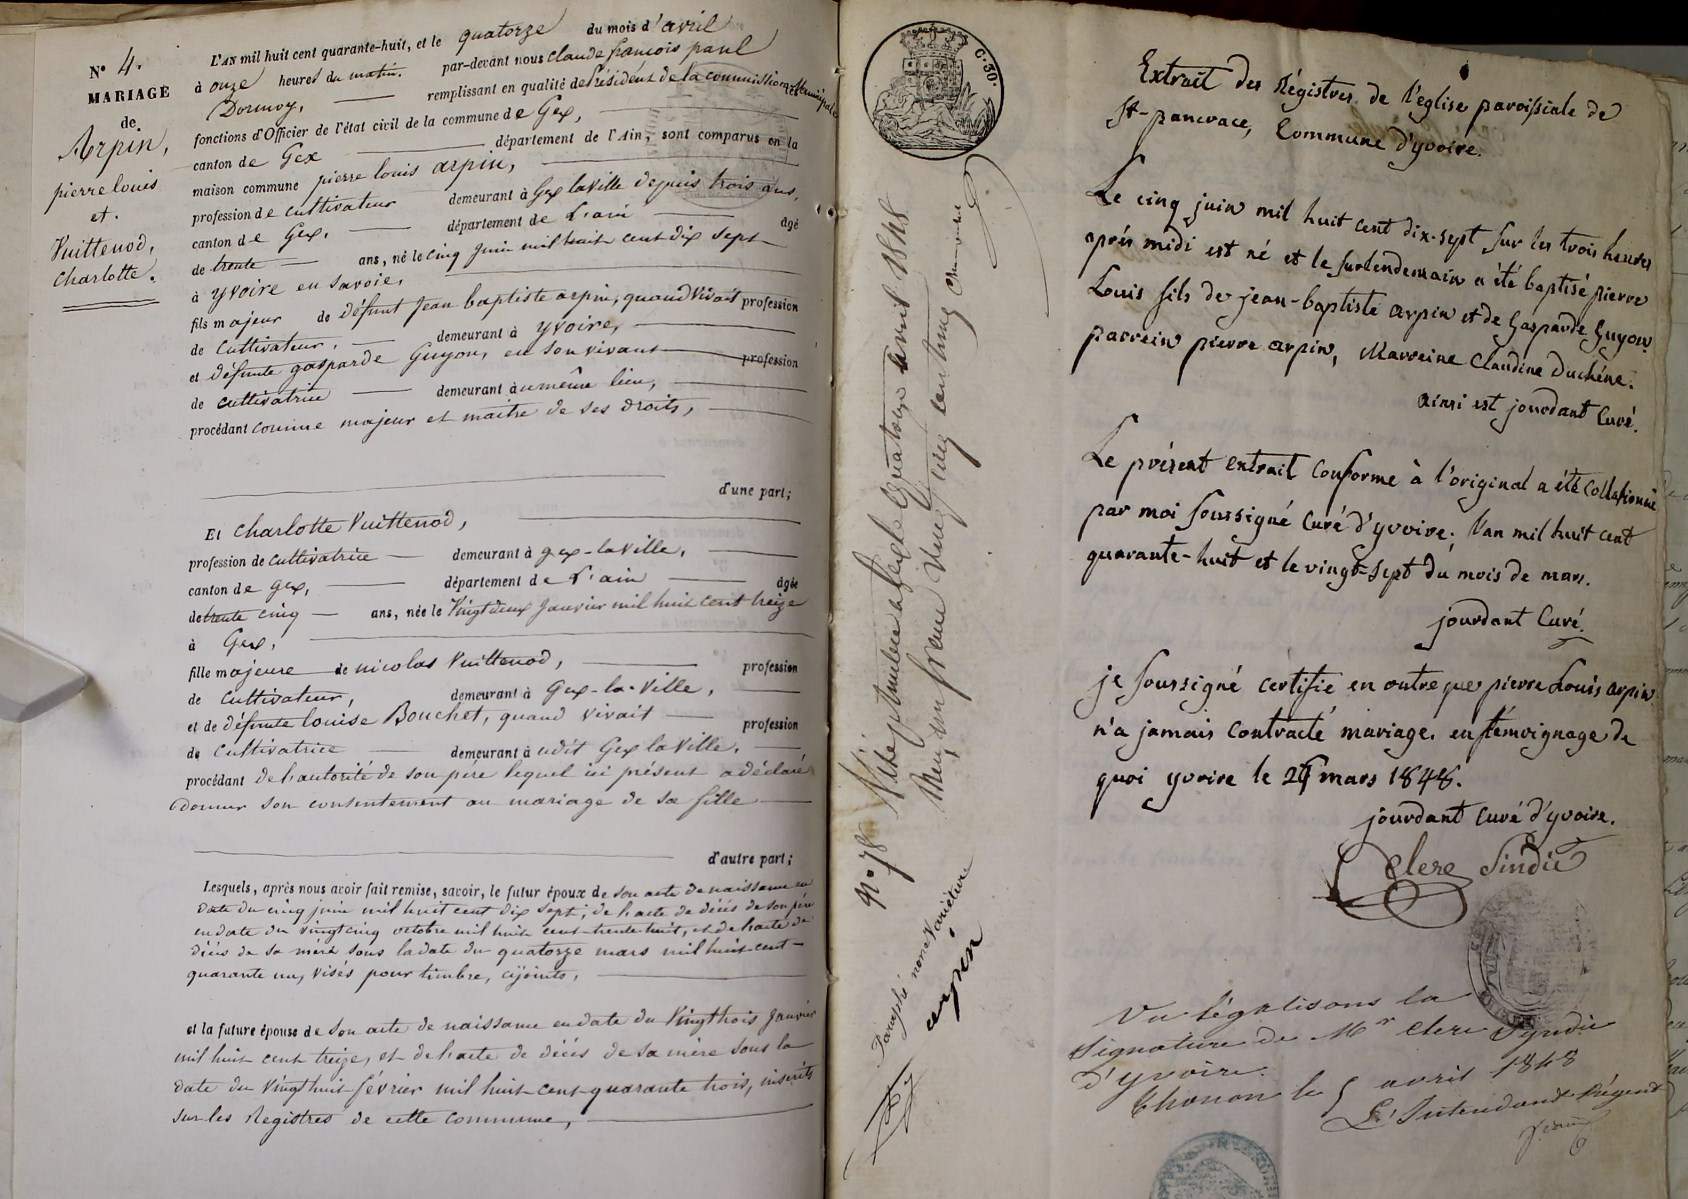 N° 4.
MARIAGE
de
Arpin,
pierre louis
et.
Vuittenod,
Charlotte.
L'AN mil huit cent quarante-huit, et le quatorze du mois d'avril
à onze heures du matin. par-devant nous claude françois paul
Dormoy, remplissant en qualité de Président de la commission Municipale les
fonctions d'Officier de l'état civil de la commune de Gex,
canton de Gex département de l'Ain, sont comparus en la
maison commune pierre louis arpin,
profession de cultivateur demeurant à Gex laville depuis trois ans,
canton de Gex, département de L'ain âgé
de trente ans, né le cinq Juin mil huit cent dix sept
à Yvoire en Savoie,
fils majeur de défunt Jean baptiste arpin, quand vivait profession
de Cultivateur, demeurant à Yvoire,
et défunte gasparde Guyon, en son vivant profession
de cultivatrice demeurant au même lieu,
procédant comme majeur et maitre de ses droits,
d'une part;
Et Charlotte Vuittenod,
profession de cultivatrice demeurant à gex-laville,
canton de gex, département de L'ain âgée
de trente cinq ans, née le Vingt deux Janvier mil huit cent treize
à Gex,
fille majeure de nicolas Vuittenod, profession
de cultivateur, demeurant à Gex-la-Ville,
et de défunte louise Bouchet, quand vivait profession
de Cultivatrice demeurant à udit Gex la Ville,
procédant de l'autorité de son père lequel ici présent a déclaré
donner son consentement au mariage de sa fille
d'autre part;
Lesquels, après nous avoir fait remise, savoir, le futur époux de son acte de naissance en
date du cinq juin mil huit cent dix sept; de l'acte de décès de son père
en date du vingt cinq octobre mil huit cent trente huit, et de l'acte de
décès de sa mère sous la date du quatorze mars mil huit cent
quarante un, visés pour timbre, cijoints,
et la future épouse de son acte de naissance en date du Vingt trois Janvier
mil huit cent treize, et de l'acte de décès de sa mère sous la
date du vingt huit février mil huit cent quarante trois, inscrits
sur les Registres de cette commune,
C. 30.
N° 78 Visé pr timbre à Gex le Quatorze avril 1848
Paraphé ne varietur
arpin
Extrait des Régistres de l'eglise paroissiale de
St-pancrace, Commune d'yvoire.
Le cinq juin mil huit cent dix-sept sur les trois heures
après midi est né et le surlendemain a été baptisé pierre
Louis fils de jean-baptiste arpin et de Gasparde Guyon.
parrein pierre arpin, Marreine Claudine Duchêne.
ainsi est jourdant Curé.
Le présent extrait conforme à l'original a été collationné
par moi soussigné Curé d'yvoire; l'an mil huit cent
quarante-huit et le vingt-sept du mois de mars.
jourdant Curé.
je soussigné certifie en outre que pierre Louis arpin
n'a jamais contracté mariage. en témoignage de
quoi yvoire le 27 mars 1848.
jourdant curé d'yvoire.
Clerc Sindic
Vu légalisons la
signature de Mr Clerc Syndic
d'yvoire.
Thonon le 5 avril 1848
L'Intendant Régent